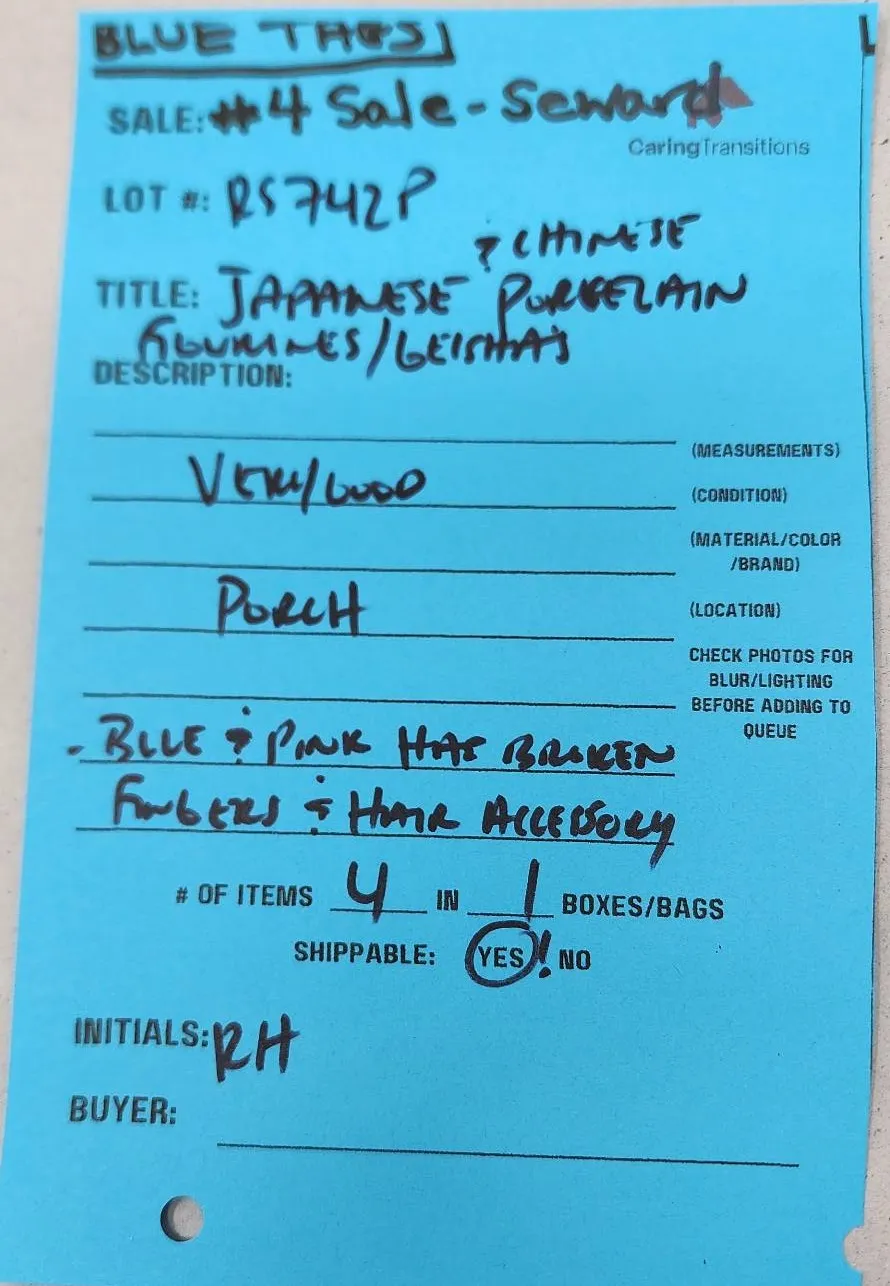 BLUE TAGS
SALE: #4 Sale - Seward
CaringTransitions
LOT #: RS742P
& CHINESE
TITLE: JAPANESE PORCELAIN
FIGURINES/GEISHAS
DESCRIPTION:
(MEASUREMENTS)
VERY/GOOD (CONDITION)
(MATERIAL/COLOR
/BRAND)
PORCH (LOCATION)
CHECK PHOTOS FOR
BLUR/LIGHTING
BEFORE ADDING TO
QUEUE
- BLUE & PINK HAS BROKEN
FINGERS & HAIR ACCESSORY
# OF ITEMS 4 IN 1 BOXES/BAGS
SHIPPABLE: YES! NO
INITIALS: RH
BUYER: